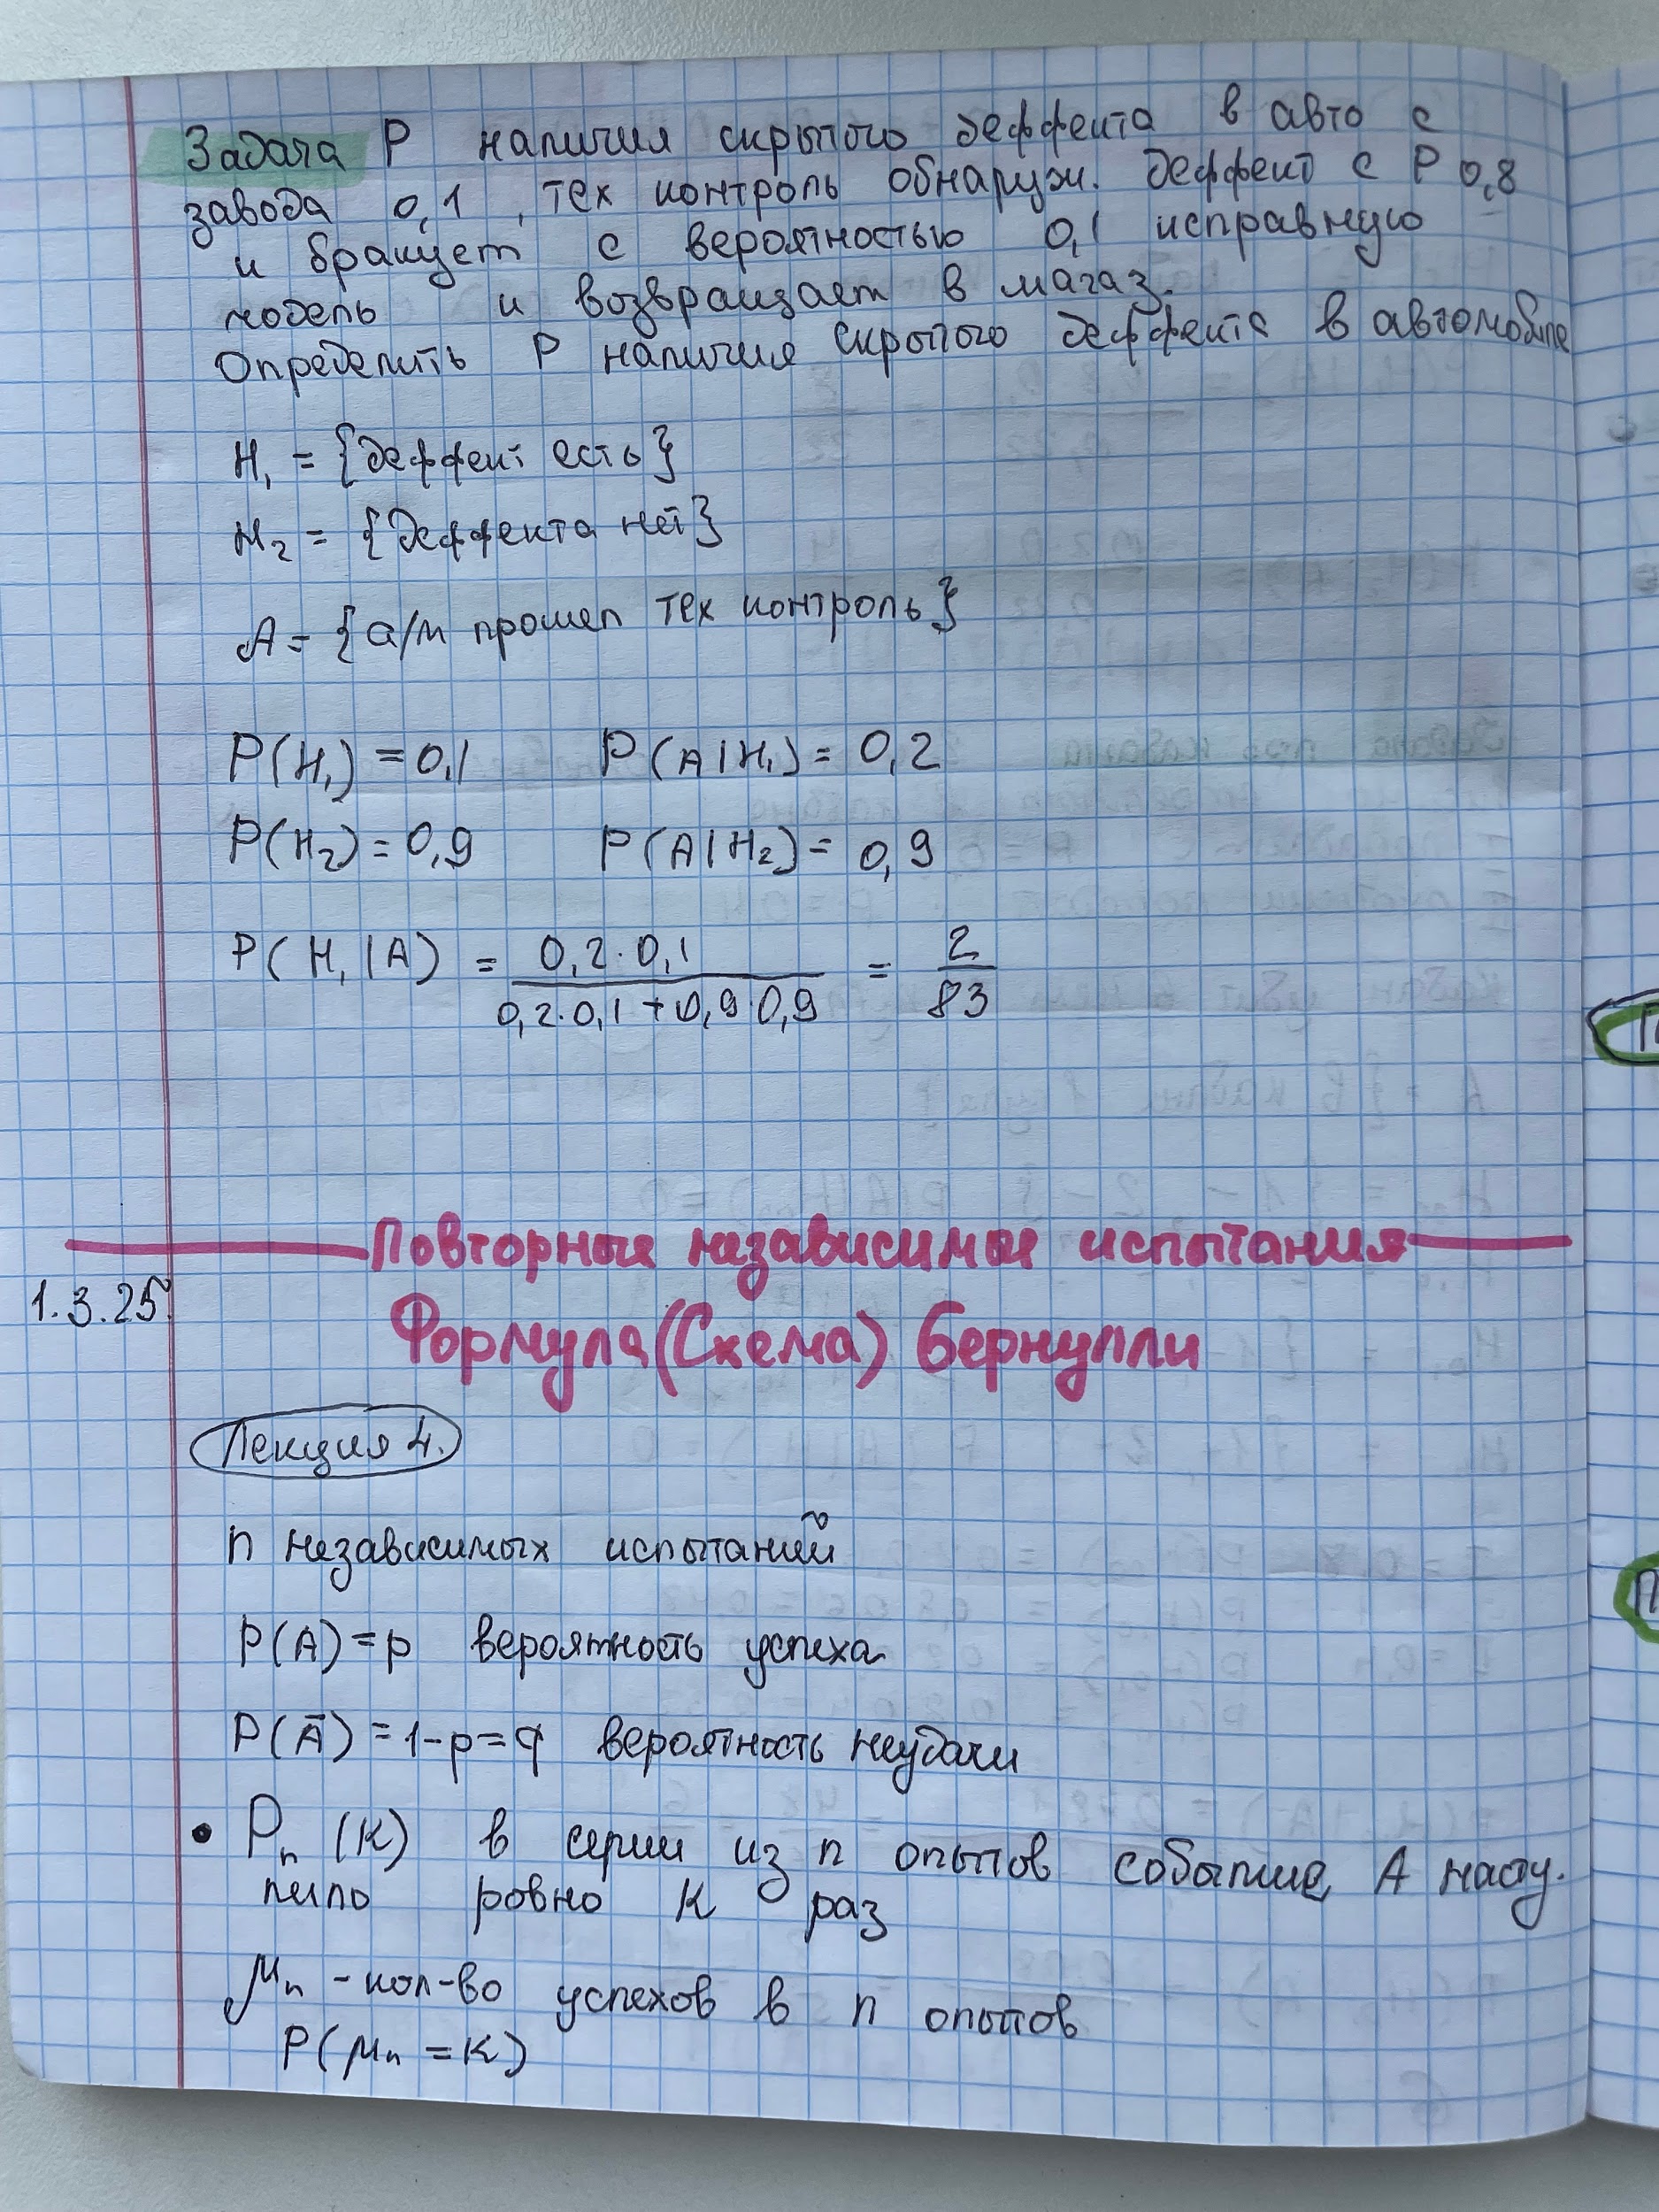 Задача P наличия скрытого деффекта в авто с
завода 0,1 , тех контроль обнаруж. деффект с P 0,8
и бракует с вероятностью 0,1 исправную
модель и возвращает в магаз.
Определить P наличия скрытого деффекта в автомобиле
H₁ = {деффект есть}
H₂ = {деффекта нет}
A = {а/м прошел тех контроль}
P(H₁) = 0,1 P(A|H₁) = 0,2
P(H₂) = 0,9 P(A|H₂) = 0,9
P(H₁|A) = (0,2·0,1)/(0,2·0,1+0,9·0,9) = 2/83
Повторные независимые испытания
1.3.25.
Формула(Схема) Бернулли
Лекция 4.
n независимых испытаний
P(A)=p вероятность успеха
P(Ā)=1-p=q вероятность неудачи
• Pₙ(к) в серии из n опытов событие A насту.
пило ровно к раз
μₙ - кол-во успехов в n опытов
P(μₙ = к)